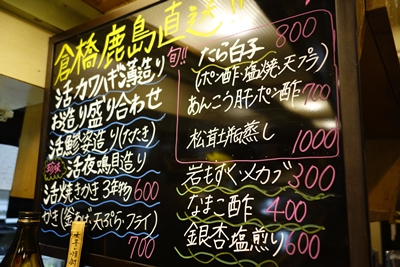 倉橋鹿島直送!!
活カワハギ薄造り
お造り盛り合わせ
活鯵姿造り(たたき)
活夜鳴貝造り
活焼きかき3年物 600
かき(釜あげ・天ぷら・フライ)
700
旬!! たら白子 800
(ポン酢・塩焼・天プラ)
あんこう肝ポン酢 700
松茸土瓶蒸し
1000
岩もずく・メカブ 300
なまこ酢 400
銀杏塩煎り 600